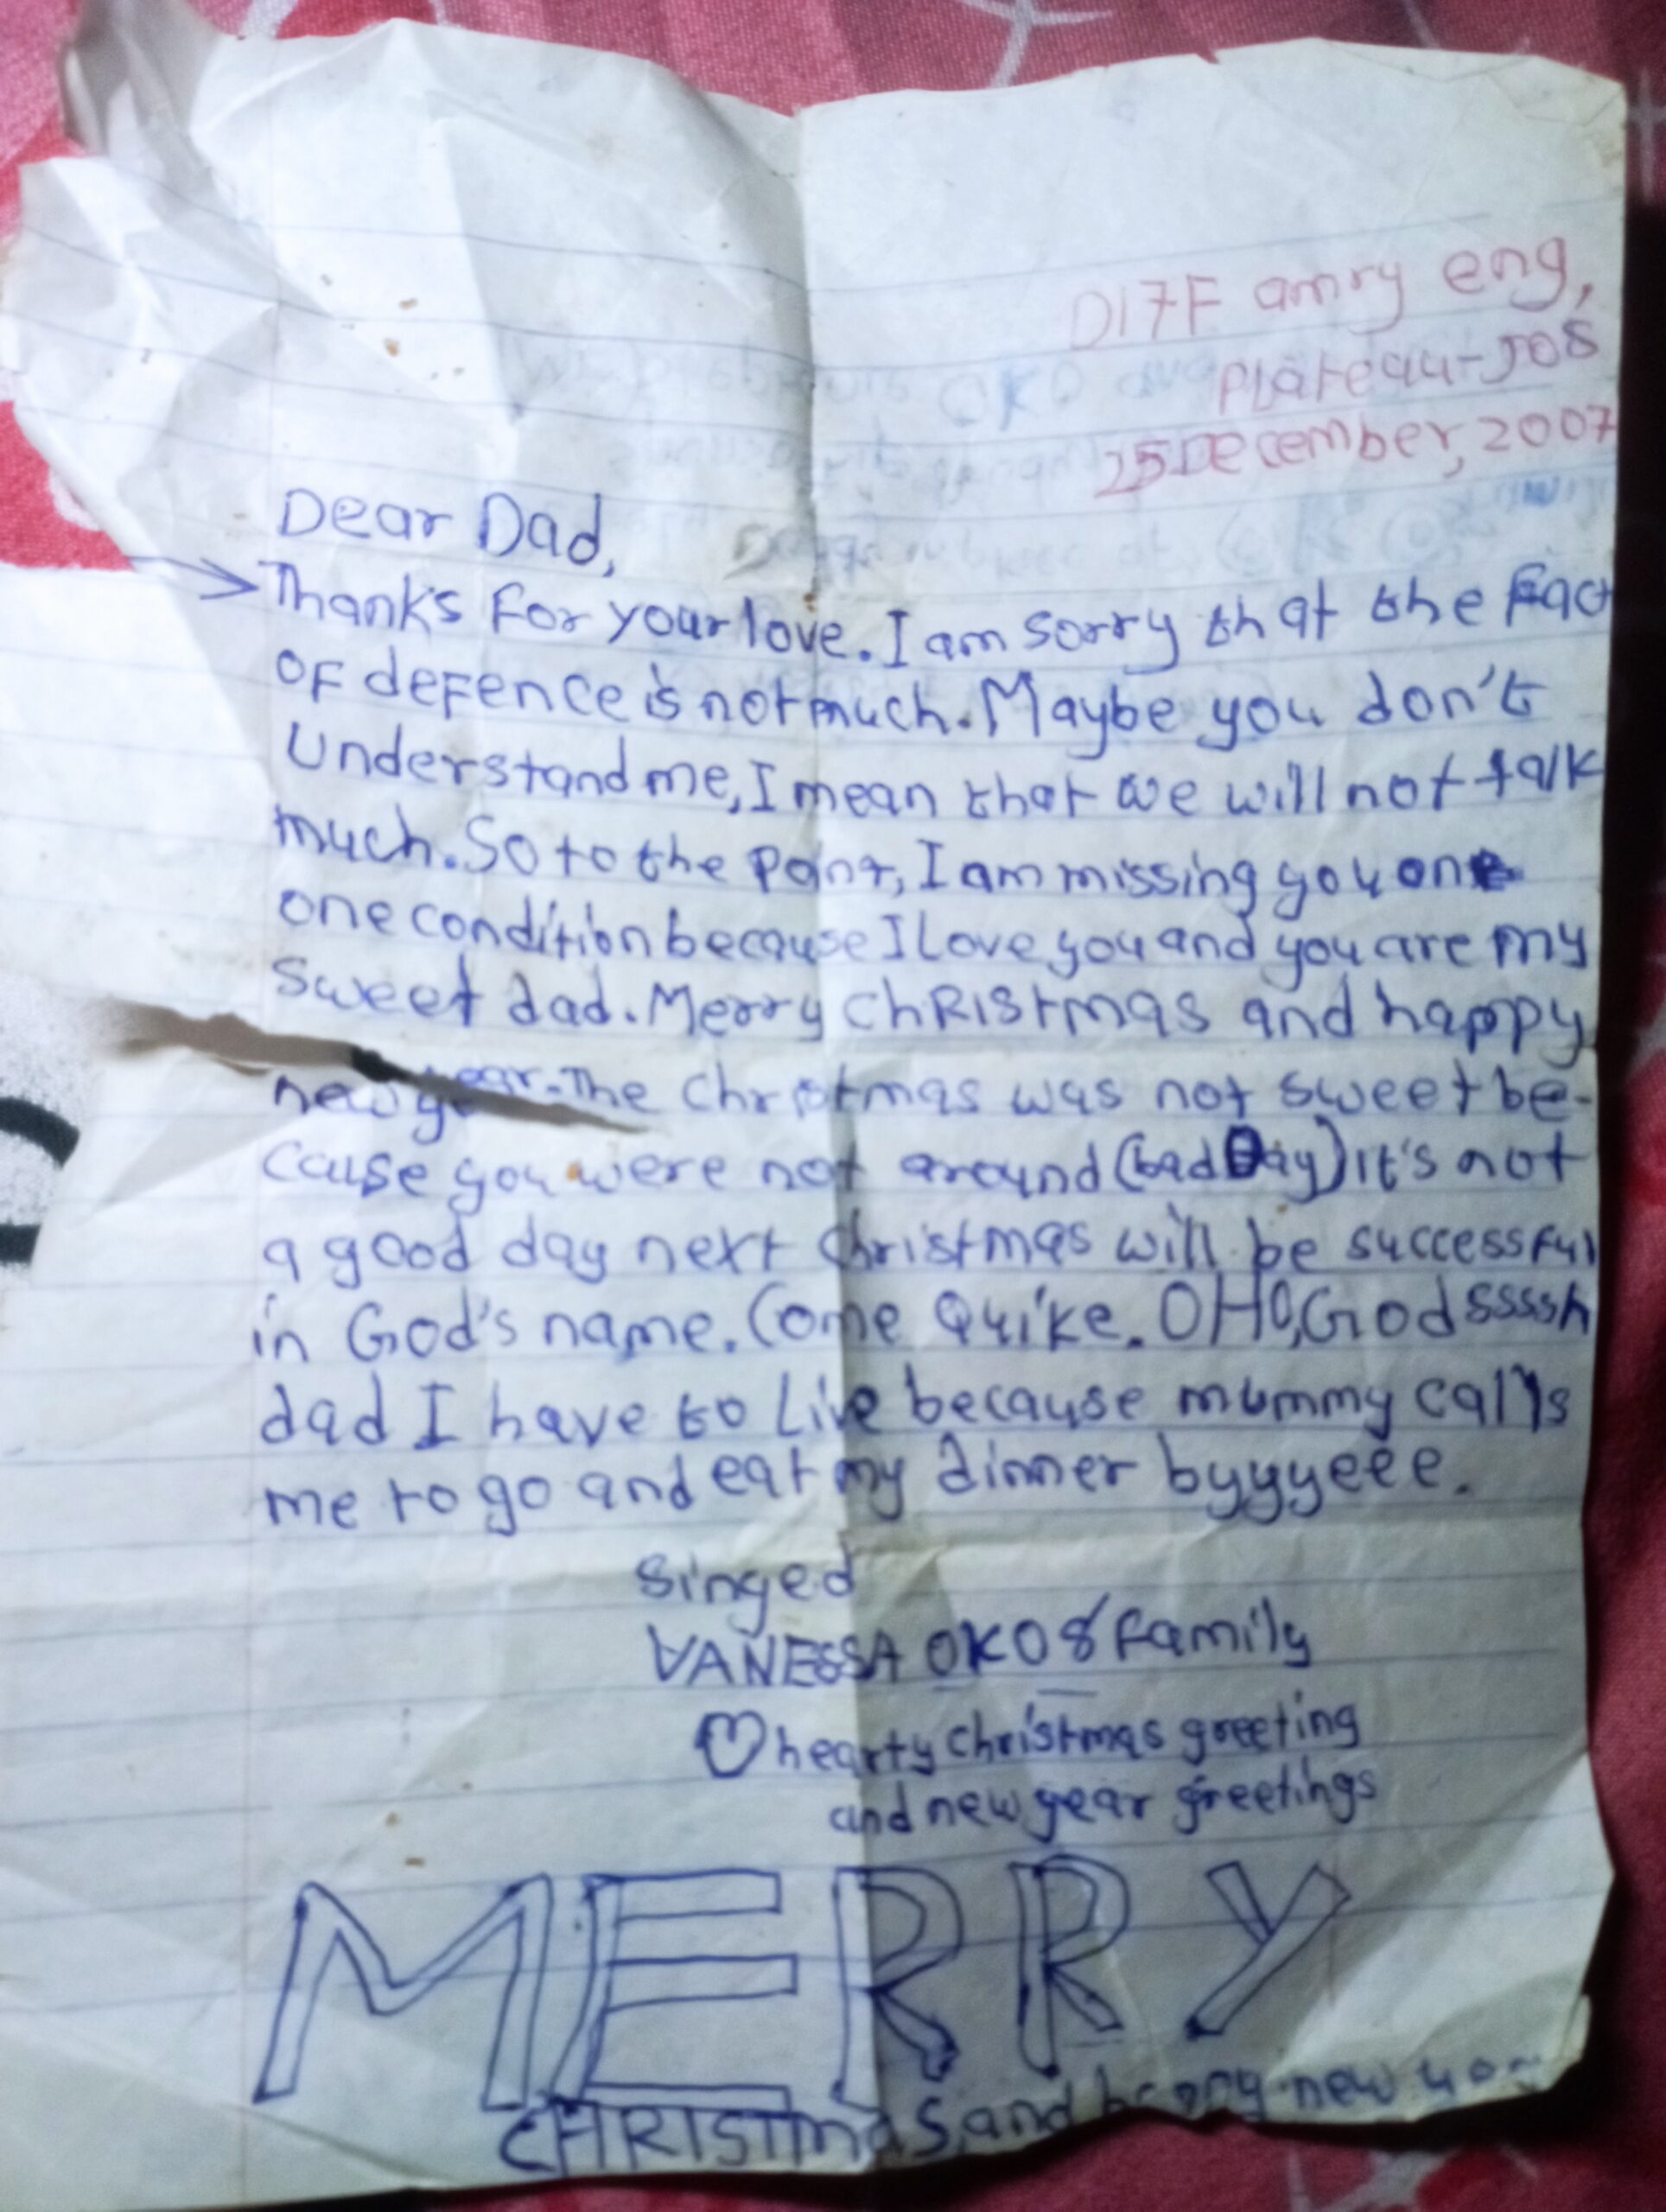 D17F amry eng,
Plateau-JOS
25 December, 2007
Dear Dad,
Thank's for your love. I am sorry that the fact
of defence is not much. Maybe you don't
understand me, I mean that we will not talk
much. So to the point, I am missing you one
one condition because I love you and you are my
sweet dad. Merry chRistmas and happy
new year. The christmas was not sweet be-
cause you were not around (bad Day) it's not
a good day next christmas will be successful
in God's name. Come Quike. OHO, God ssssh
dad I have to Live because mummy calls
me to go and eat my dinner byyyeee.
Singed
VANESSA OKO & family
hearty christmas greeting
and new year greetings
MERRY
CHRISTmAS, and happy new year